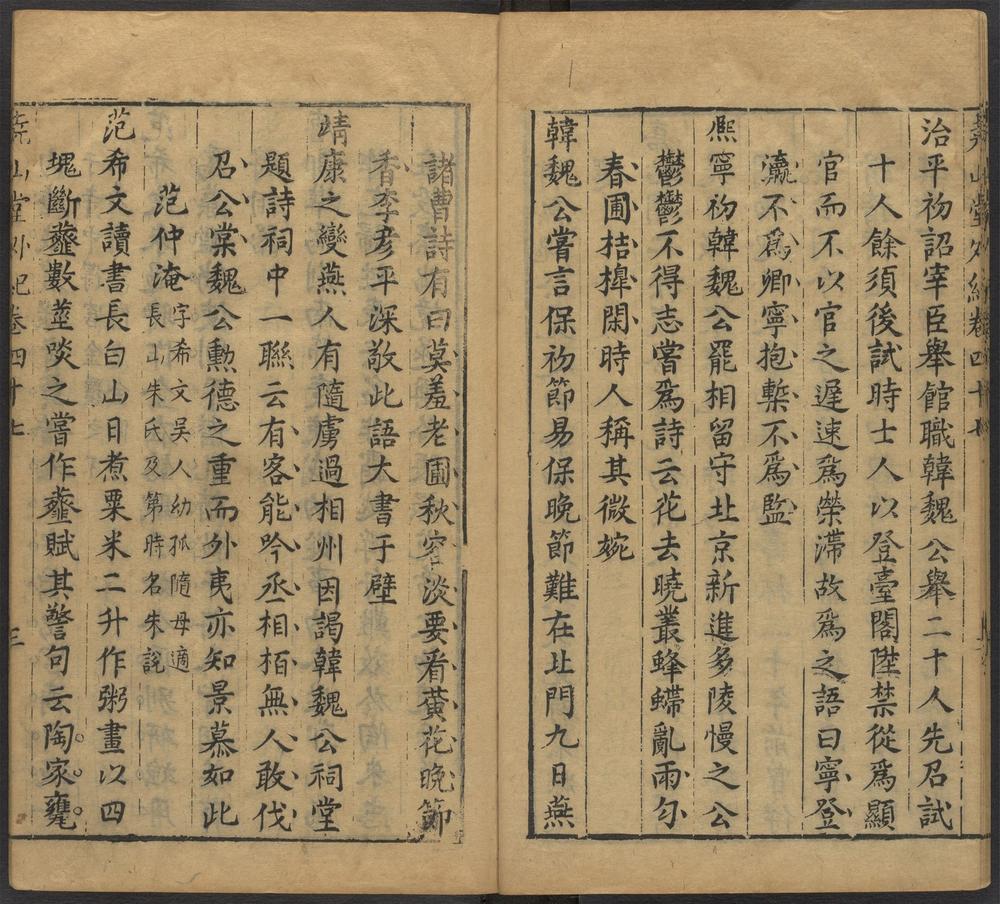 治平初詔宰臣舉館職韓魏公舉二十人先召試
十人餘須後試時士人以登臺閣陞禁從為顯
官而不以官之遲速為榮滯故為之語曰寧登
瀛不為卿寧抱槧不為監
熈寧初韓魏公罷相留守北京新進多陵慢之公
鬱鬱不得志嘗為詩云花去曉叢蜂蝶亂雨勻
春圃桔橰閑時人稱其微婉
韓魏公嘗言保初節易保晚節難在北門九日燕
諸曹詩有曰莫羞老圃秋容淡要看黃花晚節
香李彦平深敬此語大書于壁
靖康之變燕人有隨虜過相州因謁韓魏公祠堂
題詩祠中一聯云有客能吟丞相栢無人敢伐
召公棠魏公勳德之重而外夷亦知景慕如此
范仲淹字希文吳人幼孤隨母適
長山朱氏及第時名朱說
范希文讀書長白山日煮粟米二升作粥畫以四
塊斷虀數莖啖之嘗作虀賦其警句云陶家甕
堯山堂外紀卷四十七 三